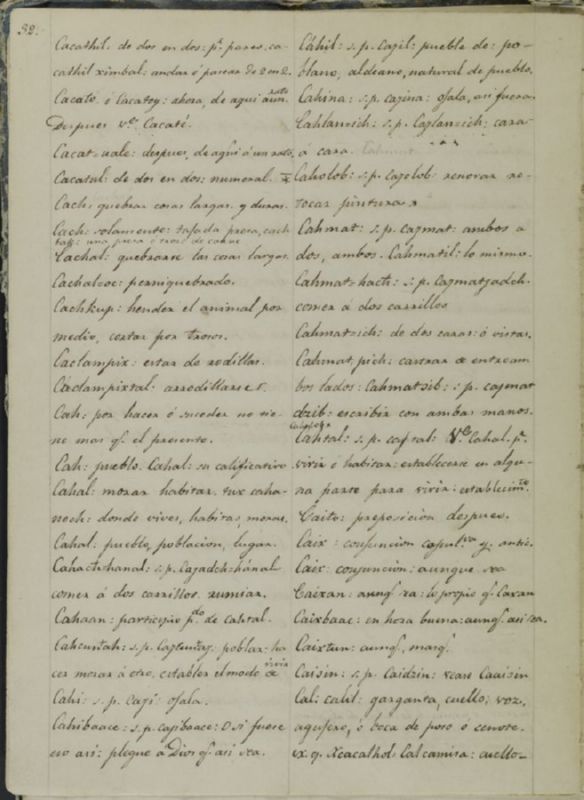 32.
Cacathil: de dos en dos: pr. pares. ca-
cathil ximbal: andar ó pasear de 2 en 2.
Cacató ó Cacatoy: ahora, de aqui á un rato
Despues Ve. Cacaté.
Cacat-uale: despues, de aqui á un rato.
Cacatul: de dos en dos: numeral.
Cach: quebrar cosas largas y duras.
Cach: solamente: tajada presa, cach
una presa ó trozo de carne
Cachal: quebrarse las cosas largas.
Cachal-oc: perniquebrado.
Cachkup: hender el animal por
medio, cortar por trozos.
Caclampix: estar de rodillas.
Caclampixtal: arrodillarse
Cah: por hacer ó suceder no tie-
ne mas q. el presente.
Cah: pueblo. Cahal: su calificativo
Cahal: morar habitar. tux caha-
nech: donde vives, habitas, moras.
Cahal: pueblo, poblacion, lugar.
Cahach-hanal: s. p. Cajadch-hánal
comer á dos carrillos. rumiar.
Cahaan: participio pdo. de cahtal.
Cahcuntah: s. p. Cajcuntaj: poblar: ha-
cer morar á otro, establer el modo de vivir
Cahi: s. p. Caji: ojala.
Cahibaace: s. p. cajibaace: O si fuere
eso asi: plegue á Dios q. asi sea.
Cáhil: s. p. Cajil: pueble de: po-
blano, aldeano, natural de pueblo.
Cahina: s. p. cajina: ojala, asi fuera.
Cahlan-ich: s. p. Cajlan-ich: cara
á cara.
Caholob: s. p. Cajolob: renovar re-
tocar pinturas
Cahmat: s. p. cajmat: ambos a
dos, ambos. Cahmatil: lo mismo.
Cahmat-hach: s. p. cajmatjadch.
comer á dos carrillos
Cahmat-ich: de dos caras: ó vistas.
Cahmat, pich: castrar de entram
bos lados: Cahmatsib: s. p. cajmat
dzib: escribir con ambas manos.
Cahtal: s. p. cajtal: Ve. Cahal. pr.
vivir ó habitar: establecerse en algu-
na parte para vivir: establecimto.
Caito: preposicion despues.
Caix: conjuncion copultva y. antic.
Caix: conjuncion: aunque sea
Caixan: aunq. sea: lo propio q. Caxan
Caixbaac: en hora buena: aunq. asi sea.
Caixtun: aunq., masq.
Caisin: s. p. Caidzin: vease Cauisin
Cal: calil: garganta, cuello; voz,
agujero, ó boca de poso ó cenote.
ex. g. Xcacathol Cal camisa: cuello-